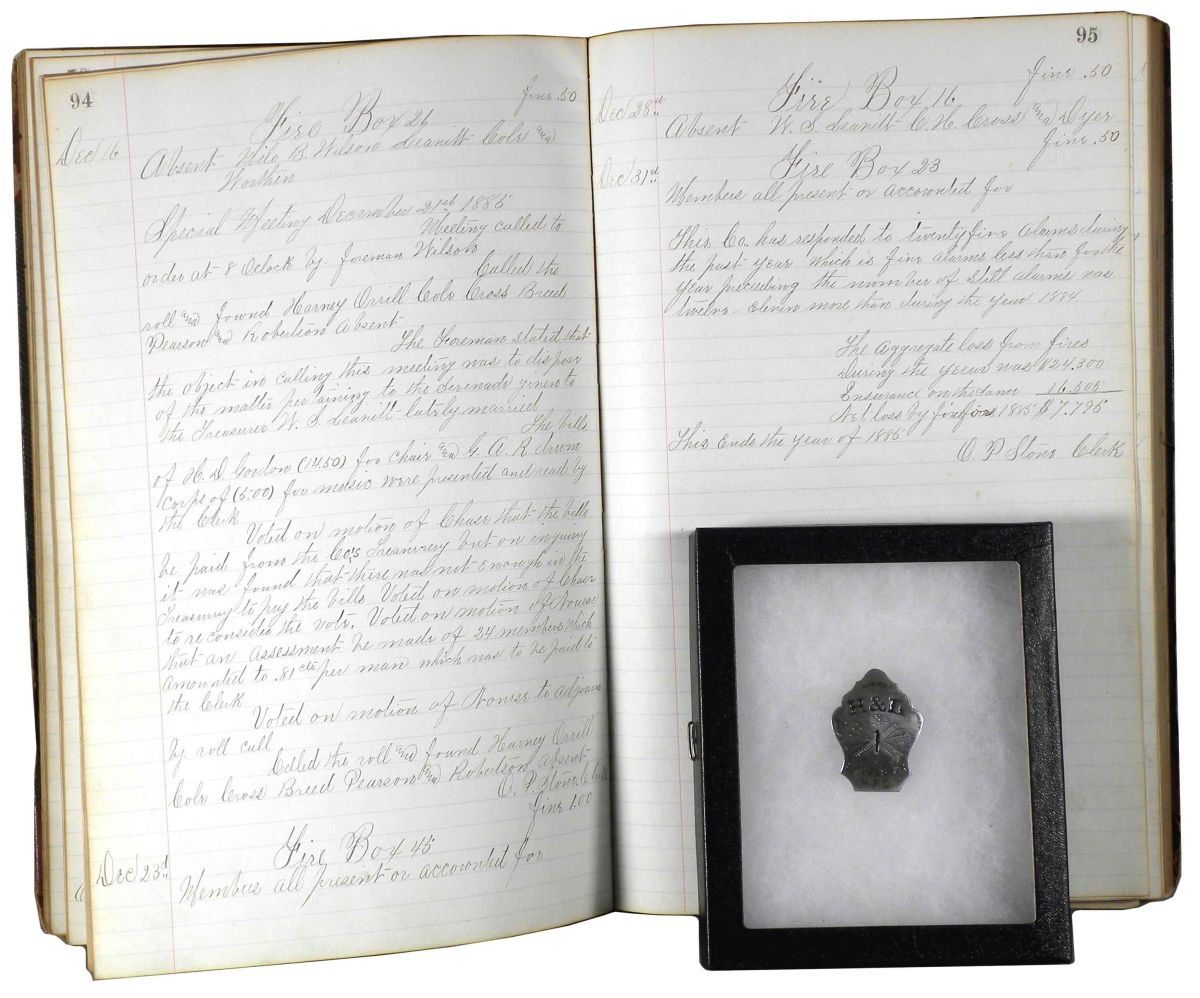 94
fine .50
Fire Box 21
Dec 16
Absent Milo B. Wilson Leavitt Cole and
Worthen
Special Meeting December 21st 1885
Meeting called to
order at 8 Oclock by foreman Wilson
Called the
roll and found Harney Orrill Cole Cross Breed
Pearson and Robertson Absent
The Foreman stated that
the object in calling this meeting was to dispose
of the matter pertaining to the Serenade given to
the Treasurer W. S. Leavitt lately married
The bills
of H. D. Gordon (14.50) for chair and G. A. R drum
corps of (5.00) for music were presented and read by
the Clerk
Voted on motion of Chase that the bills
be paid from the Co's Treasurery but on inquiry
it was found that there was not enough in the
Treasurery to pay the bills Voted on motion of Chase
to reconsider the vote. Voted on motion of Nourse
that an assessment be made of 24 members which
amounted to .81 cts per man which was to be paid to
the Clerk
Voted on motion of Nourse to adjourn
by roll call
Called the roll and found Harney Orrill
Cole Cross Breed Pearson and Robertson absent
O. P. Stone Clerk
fine 1.00
Fire Box 45
Dec 23rd
Members all present or accounted for
95
fine .50
Fire Box 16
Dec 28st
Absent W. S. Leavitt C. H. Cross and Dyer
fine .50
Fire Box 23
Dec 31st
Members all present or accounted for
This Co. has responded to twenty five alarms during
the past year which is five alarms less than for the
year preceding the number of Still alarms was
twelve. Eleven more than during the year 1884
The aggregate loss from fires
During the year was $24.300
Insurance on the same 16.505
Net loss by fire for 1885 $7.795
This Ends the year of 1885
O. P Stone Clerk
H&L
1